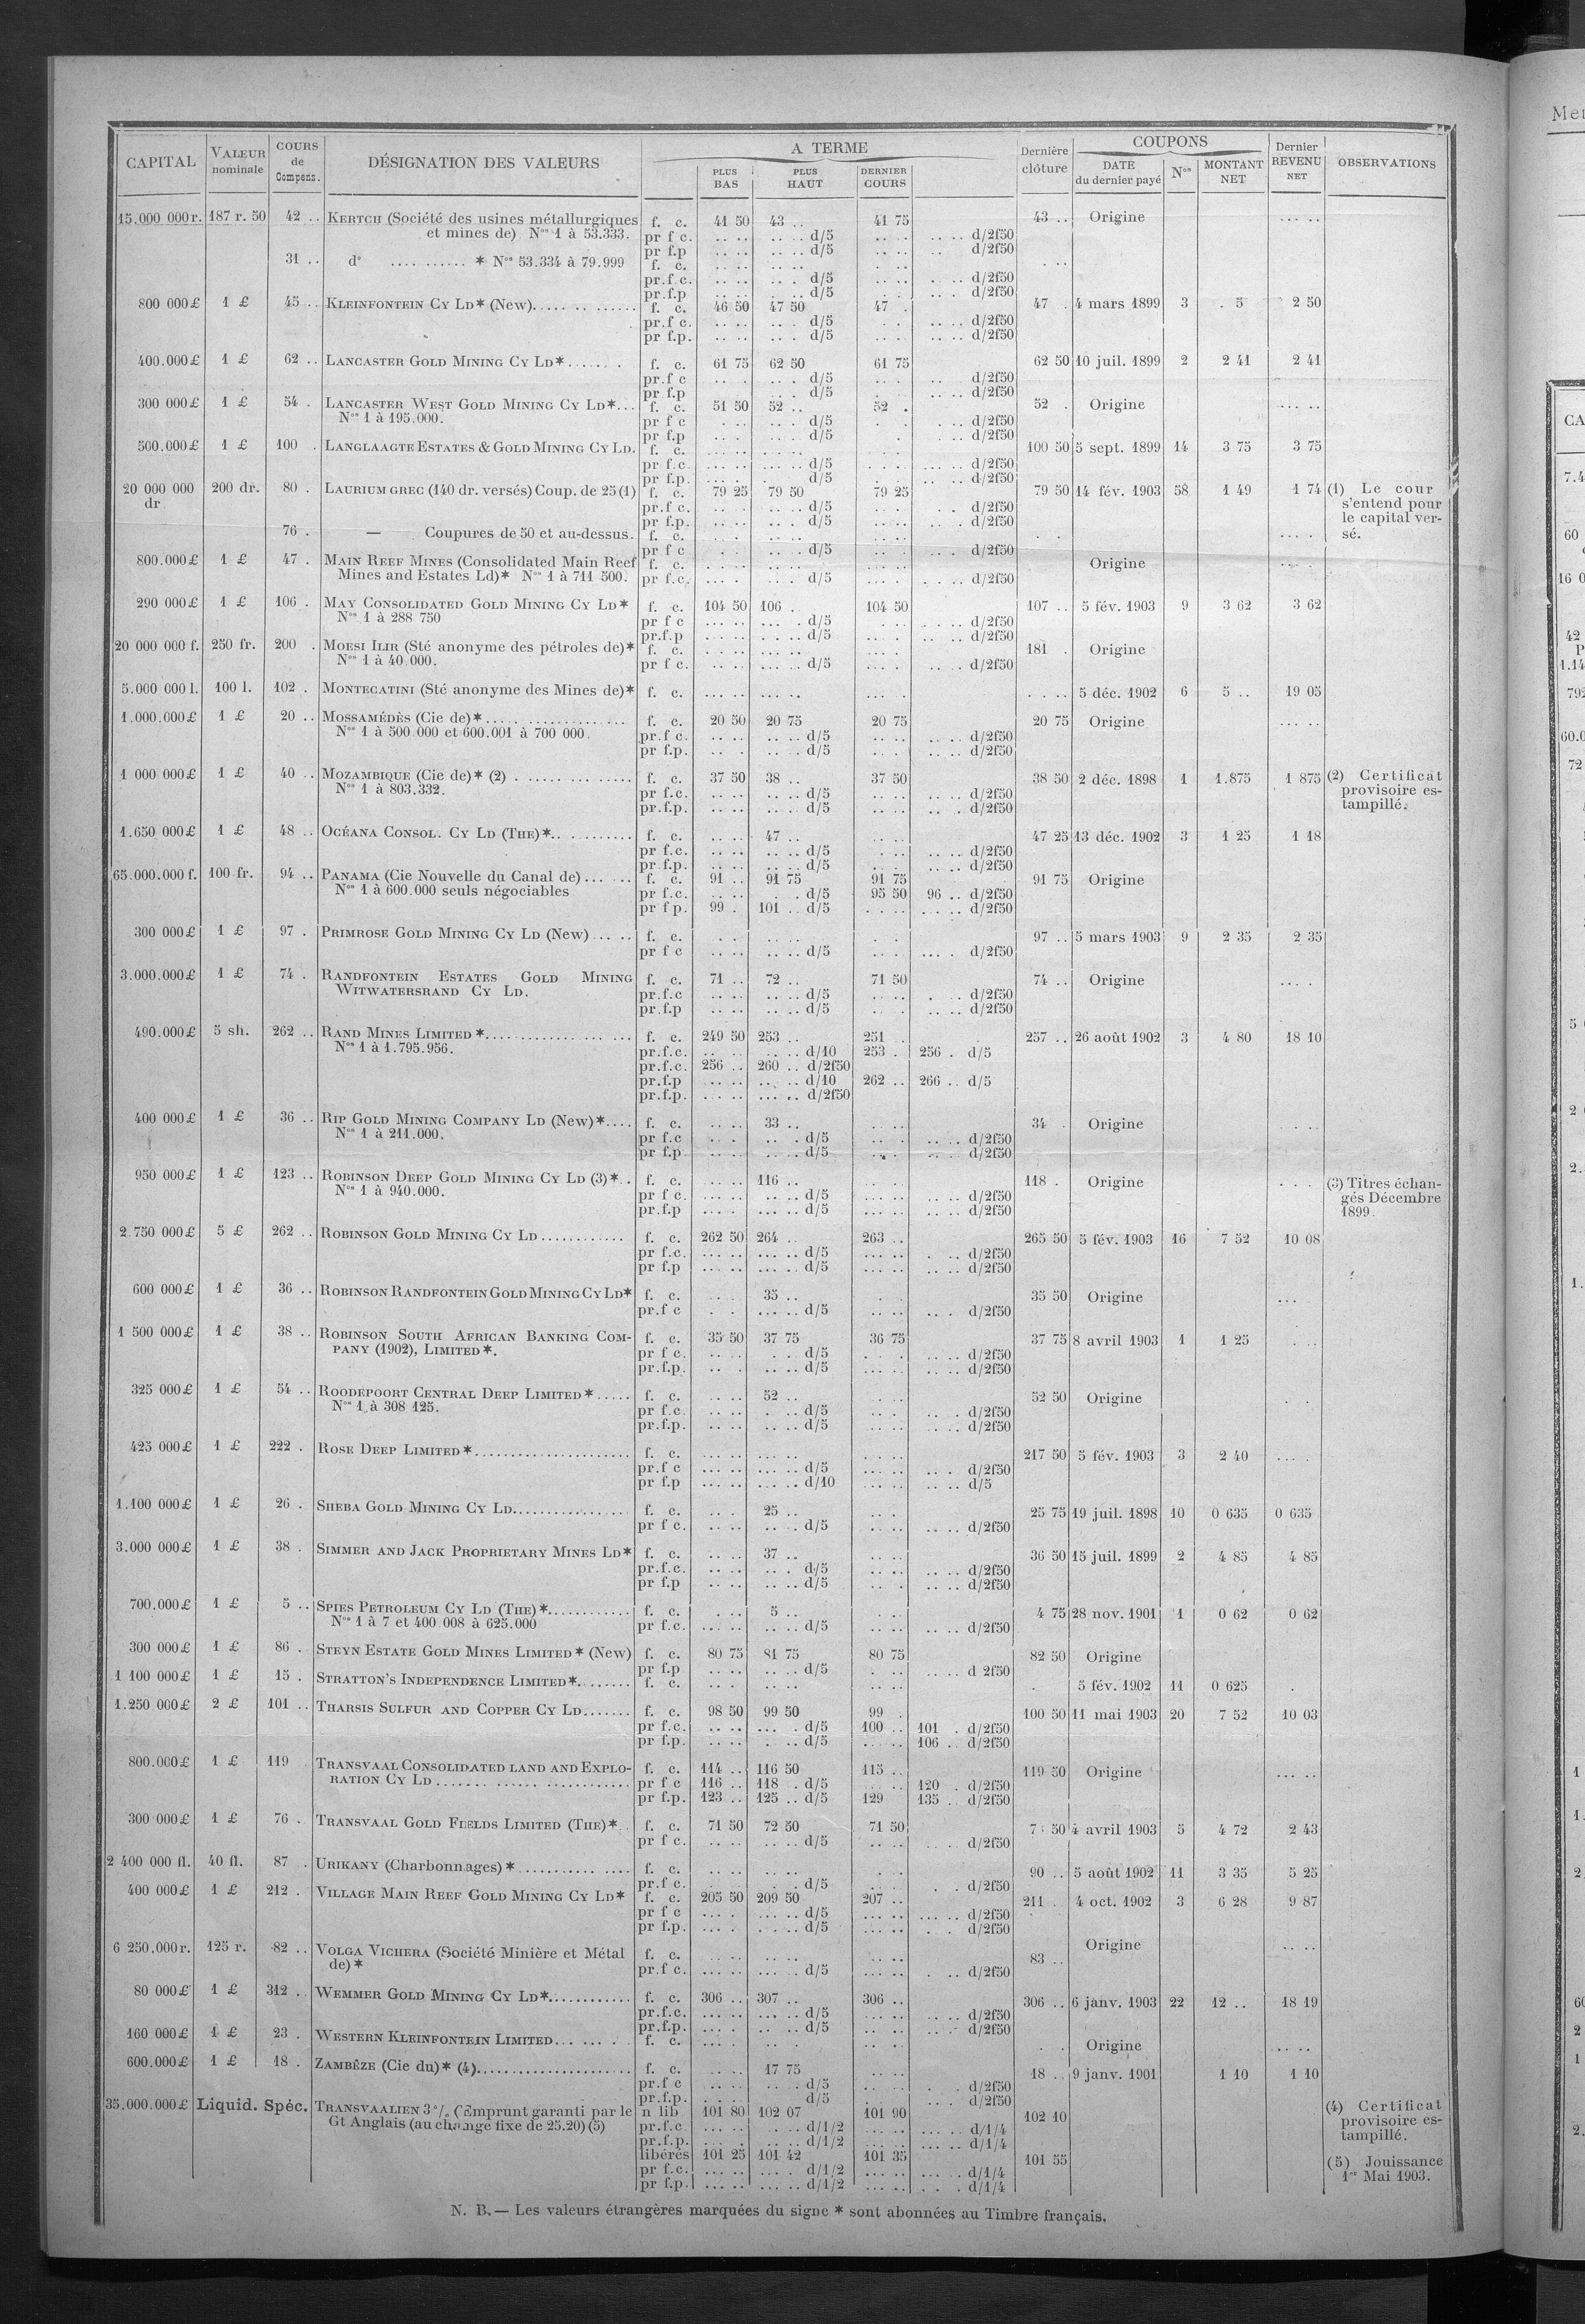 CAPITAL VALEUR nominale COURS de Compens. DÉSIGNATION DES VALEURS A TERME PLUS BAS PLUS HAUT DERNIER COURS Dernière clôture COUPONS DATE du dernier payé Nos MONTANT NET Dernier REVENU NET OBSERVATIONS
15.000 000 r. 187 r. 50 42 .. KERTCH (Société des usines métallurgiques f. c. 41 50 43 .. 41 75 43 .. Origine
et mines de) Nos 1 à 53.333. pr f c. d/5 d/2f50
pr f.p d/5 d/2f50
31 .. do * Nos 53.334 à 79.999 f. c.
pr.f.c. d/5 d/2f50
pr.f.p d/5 d/2f50
800 000 £ 1 £ 45 .. KLEINFONTEIN CY LD* (New) f. c. 46 50 47 50 47 . 47 . 4 mars 1899 3 . 5 2 50
pr.f c. d/5 d/2f50
pr f.p. d/5 d/2f50
400.000 £ 1 £ 62 .. LANCASTER GOLD MINING CY LD* f. c. 61 75 62 50 61 75 62 50 10 juil. 1899 2 2 41 2 41
pr.f c d/5 d/2f50
pr f.p d/5 d/2f50
300 000 £ 1 £ 54 . LANCASTER WEST GOLD MINING CY LD* f. c. 51 50 52 .. 52 . 52 . Origine
Nos 1 à 195.000. pr f c d/5 d/2f50
pr f.p d/5 d/2f50
500.000 £ 1 £ 100 . LANGLAAGTE ESTATES & GOLD MINING CY LD. f. c. 100 50 5 sept. 1899 14 3 75 3 75
pr f.c. d/5 d/2f50
pr f.p. d/5 d/2f50
20 000 000 dr 200 dr. 80 . LAURIUM GREC (140 dr. versés) Coup. de 25 (1) f. c. 79 25 79 50 79 25 79 50 14 fév. 1903 58 1 49 1 74 (1) Le cour
pr.f c. d/5 d/2f50 s'entend pour
pr f.p. d/5 d/2f50 le capital ver-
76 . — Coupures de 50 et au-dessus. f. c. sé.
pr f c d/5 d/2f50
800.000 £ 1 £ 47 . MAIN REEF MINES (Consolidated Main Reef f. c. Origine
Mines and Estates Ld)* Nos 1 à 711 500. pr f.c. d/5 d/2f50
290 000 £ 1 £ 106 . MAY CONSOLIDATED GOLD MINING CY LD* f. c. 104 50 106 . 104 50 107 .. 5 fév. 1903 9 3 62 3 62
Nos 1 à 288 750 pr f c d/5 d/2f50
pr.f.p d/5 d/2f50
20 000 000 f. 250 fr. 200 . MOESI ILIR (Sté anonyme des pétroles de)* f. c. 181 . Origine
Nos 1 à 40.000. pr f c. d/5 d/2f50
5.000 000 l. 100 l. 102 . MONTECATINI (Sté anonyme des Mines de)* f. c. 5 déc. 1902 6 5 .. 19 05
1.000.000 £ 1 £ 20 .. MOSSAMÉDÈS (Cie de)* f. c. 20 50 20 75 20 75 20 75 Origine
Nos 1 à 500 000 et 600.001 à 700 000. pr.f c. d/5 d/2f50
pr f.p. d/5 d/2f50
1 000 000 £ 1 £ 40 .. MOZAMBIQUE (Cie de)* (2) f. c. 37 50 38 .. 37 50 38 50 2 déc. 1898 1 1.875 1 875 (2) Certificat
Nos 1 à 803.332. pr f.c. d/5 d/2f50 provisoire es-
pr.f.p. d/5 d/2f50 tampillé.
1.650 000 £ 1 £ 48 .. OCÉANA CONSOL. CY LD (THE)* f. c. 47 .. 47 25 13 déc. 1902 3 1 25 1 18
pr f.c. d/5 d/2f50
pr f.p. d/5 d/2f50
65.000.000 f. 100 fr. 94 .. PANAMA (Cie Nouvelle du Canal de) f. c. 91 .. 91 75 91 75 91 75 Origine
Nos 1 à 600.000 seuls négociables pr f.c. d/5 95 50 96 .. d/2f50
pr f p. 99 . 101 .. d/5 d/2f50
300 000 £ 1 £ 97 . PRIMROSE GOLD MINING CY LD (New) f. c. 97 .. 5 mars 1903 9 2 35 2 35
pr f c d/5 d/2f50
3.000.000 £ 1 £ 74 . RANDFONTEIN ESTATES GOLD MINING f. c. 71 .. 72 .. 71 50 74 .. Origine
WITWATERSRAND CY LD. pr.f.c d/5 d/2f50
pr.f.p d/5 d/2f50
490.000 £ 5 sh. 262 .. RAND MINES LIMITED * f. c. 249 50 253 .. 251 257 .. 26 août 1902 3 4 80 18 10
Nos 1 à 1.795.956. pr.f.c. d/10 253 . 256 . d/5
pr.f.c. 256 .. 260 .. d/2f50
pr.f.p d/10 262 .. 266 .. d/5
pr.f.p. d/2f50
400 000 £ 1 £ 36 .. RIP GOLD MINING COMPANY LD (New)* f. c. 33 .. 34 . Origine
Nos 1 à 211.000. pr f.c d/5 d/2f50
pr f.p d/5 d/2f50
950 000 £ 1 £ 123 .. ROBINSON DEEP GOLD MINING CY LD (3)* f. c. 116 .. 118 . Origine (3) Titres échan-
Nos 1 à 940.000. pr f c. d/5 d/2f50 gés Décembre
pr.f.p d/5 d/2f50 1899.
2.750 000 £ 5 £ 262 .. ROBINSON GOLD MINING CY LD f. c. 262 50 264 .. 263 .. 265 50 5 fév. 1903 16 7 52 10 08
pr f.c. d/5 d/2f50
pr f.p d/5 d/2f50
600 000 £ 1 £ 36 .. ROBINSON RANDFONTEIN GOLD MINING CY LD* f. c. 35 .. 35 50 Origine
pr.f c d/5 d/2f50
1 500 000 £ 1 £ 38 .. ROBINSON SOUTH AFRICAN BANKING COM- f. c. 35 50 37 75 36 75 37 75 8 avril 1903 1 1 25
PANY (1902), LIMITED *. pr f c. d/5 d/2f50
pr.f.p. d/5 d/2f50
325 000 £ 1 £ 54 .. ROODEPOORT CENTRAL DEEP LIMITED * f. c. 52 .. 52 50 Origine
Nos 1 à 308 125. pr f.c. d/5 d/2f50
pr.f.p. d/5 d/2f50
425 000 £ 1 £ 222 . ROSE DEEP LIMITED * f. c. 217 50 5 fév. 1903 3 2 40
pr.f c d/5 d/2f50
pr f.p d/10 d/5
1.100 000 £ 1 £ 26 . SHEBA GOLD MINING CY LD f. c. 25 .. 25 75 19 juil. 1898 10 0 635 0 635
pr f c. d/5 d/2f50
3.000 000 £ 1 £ 38 . SIMMER AND JACK PROPRIETARY MINES LD* f. c. 37 .. 36 50 15 juil. 1899 2 4 85 4 85
pr.f.c. d/5 d/2f50
pr f.p d/5 d/2f50
700.000 £ 1 £ 5 .. SPIES PETROLEUM CY LD (THE)* f. c. 5 .. 4 75 28 nov. 1901 1 0 62 0 62
Nos 1 à 7 et 400 008 à 625.000 pr f.c. d/5 d/2f50
300 000 £ 1 £ 86 . STEYN ESTATE GOLD MINES LIMITED * (New) f. c. 80 75 81 75 80 75 82 50 Origine
pr f.p d/5 d 2f50
1 100 000 £ 1 £ 15 . STRATTON'S INDEPENDENCE LIMITED* f. c. 5 fév. 1902 11 0 625
1.250 000 £ 2 £ 101 .. THARSIS SULFUR AND COPPER CY LD f. c. 98 50 99 50 99 . 100 50 11 mai 1903 20 7 52 10 03
pr f.c. d/5 100 .. 101 . d/2f50
pr f.p. d/5 106 .. d/2f50
800.000 £ 1 £ 119 TRANSVAAL CONSOLIDATED LAND AND EXPLO- f. c. 114 .. 116 50 115 .. 119 50 Origine
RATION CY LD pr f c 116 .. 118 . d/5 120 . d/2f50
pr f.p. 123 .. 125 .. d/5 129 135 .. d/2f50
300 000 £ 1 £ 76 . TRANSVAAL GOLD FIELDS LIMITED (THE)* f. c. 71 50 72 50 71 50 50 4 avril 1903 5 4 72 2 43
pr f c. d/5 d/2f50
2 400 000 fl. 40 fl. 87 . URIKANY (Charbonnages) * f. c. 90 .. 5 août 1902 11 3 35 5 25
pr.f c. d/5 d/2f50
400 000 £ 1 £ 212 . VILLAGE MAIN REEF GOLD MINING CY LD* f. c. 205 50 209 50 207 .. 211 .. 4 oct. 1902 3 6 28 9 87
pr f c d/5 d/2f50
pr f.p. d/5 d/2f50
6 250.000 r. 125 r. 82 .. VOLGA VICHERA (Société Minière et Métal f. c. 83 .. Origine
de) * pr.f c. d/5 d/2f50
80 000 £ 1 £ 312 . WEMMER GOLD MINING CY LD* f. c. 306 .. 307 .. 306 .. 306 .. 6 janv. 1903 22 12 .. 18 19
pr.f.c. d/5 d/2f50
pr.f.p. d/5 d/2f50
160 000 £ 1 £ 23 . WESTERN KLEINFONTEIN LIMITED f. c. Origine
600.000 £ 1 £ 18 . ZAMBÈZE (Cie du)* (4) f. c. 17 75 18 .. 9 janv. 1901 1 10 1 10
pr.f c d/5 d/2f50
pr.f.p. d/5 d/2f50
35.000.000 £ Liquid. Spéc. TRANSVAALIEN 3 % (Emprunt garanti par le n lib 101 80 102 07 101 90 102 10 (4) Certificat
Gt Anglais (au change fixe de 25.20) (5) pr.f.c. d/1/2 d/1/4 provisoire es-
pr.f.p. d/1/2 d/1/4 tampillé.
libérés 101 25 101 42 101 35 101 55 (5) Jouissance
pr f.c. d/1/2 d/1/4 1er Mai 1903.
pr f.p. d/1/2 d/1/4
N. B. — Les valeurs étrangères marquées du signe * sont abonnées au Timbre français.